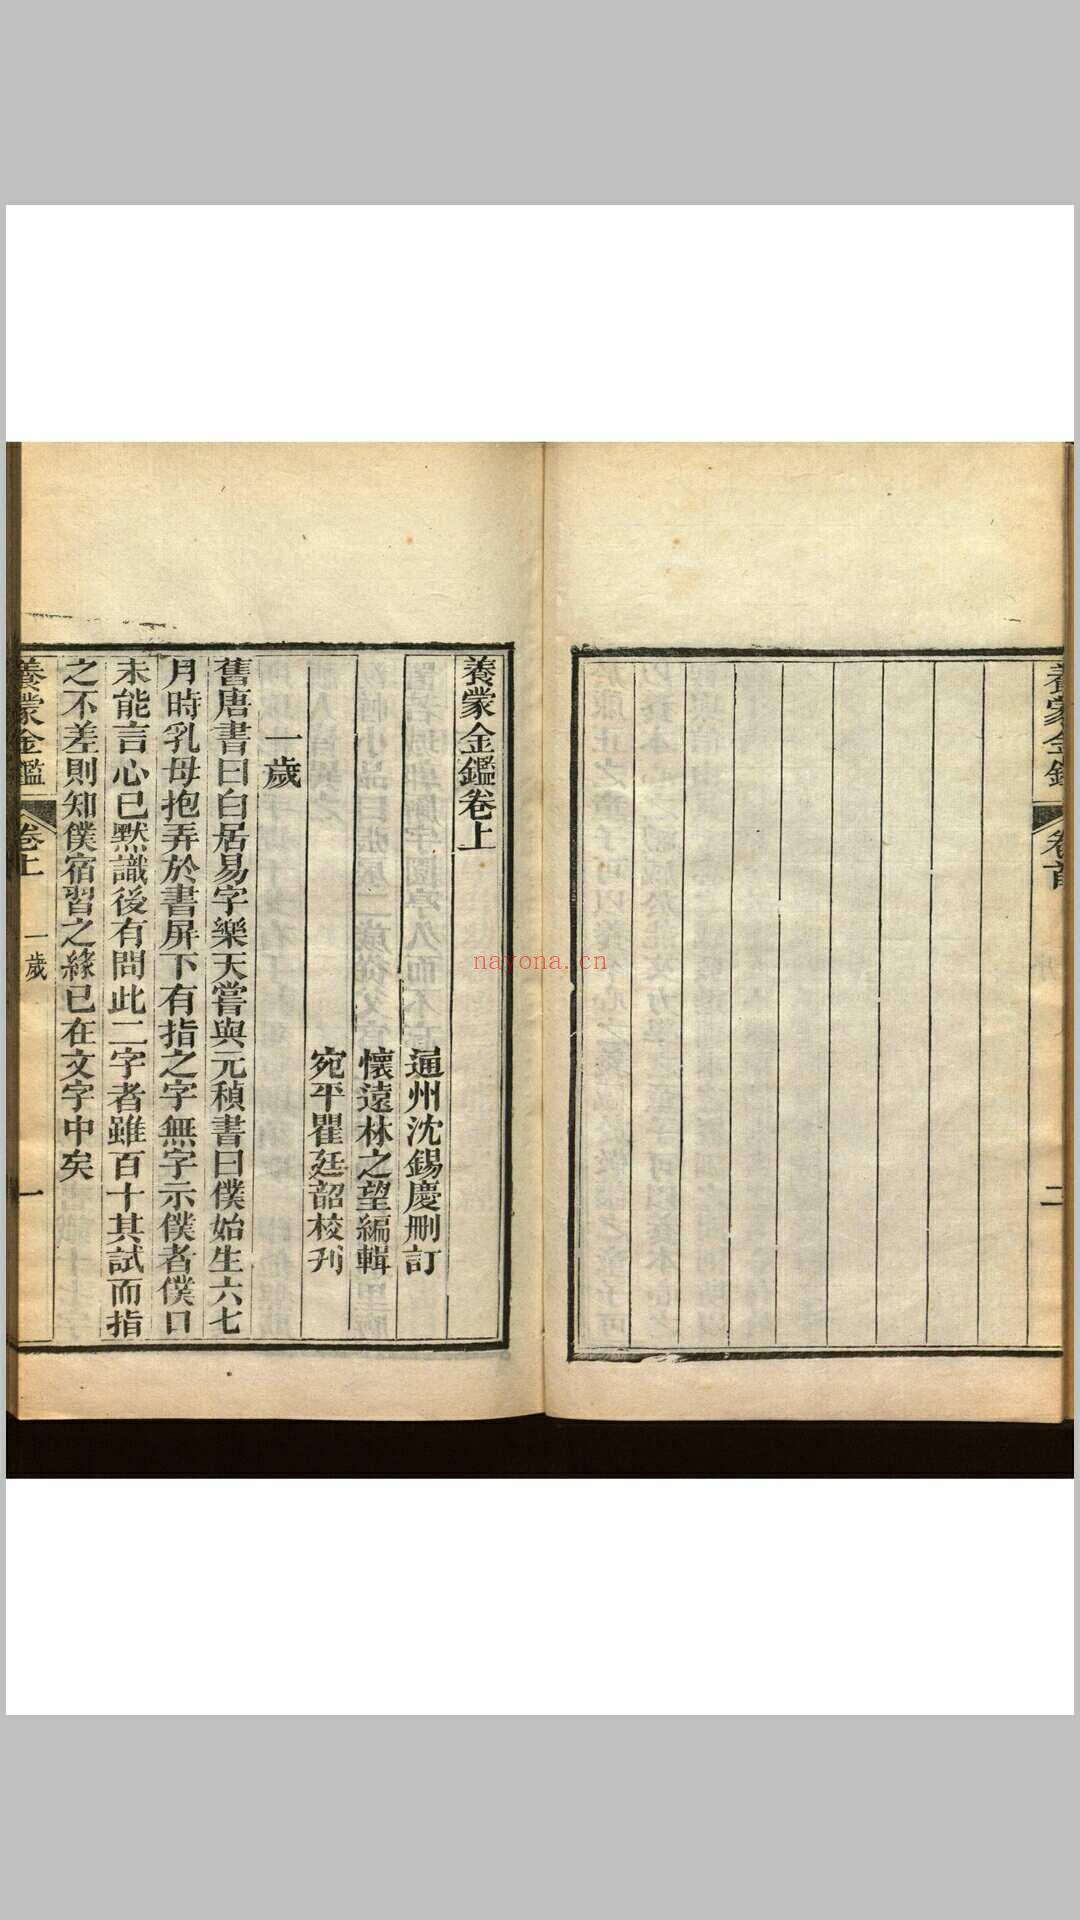 養蒙金
卷首
二
養蒙金鑑卷上
通州沈錫慶刪訂
懷遠林之望編輯
宛平瞿廷韶校刋
一歲
舊唐書曰白居易字樂天嘗與元稹書曰僕始生六七
月時乳母抱弄於書屏下有指之字無字示僕者僕口
未能言心已默識後有問此二字者雖百十其試而指
之不差則知僕宿習之緣已在文字中矣
養蒙金鑑
卷上
一歲
一
nayona.cn